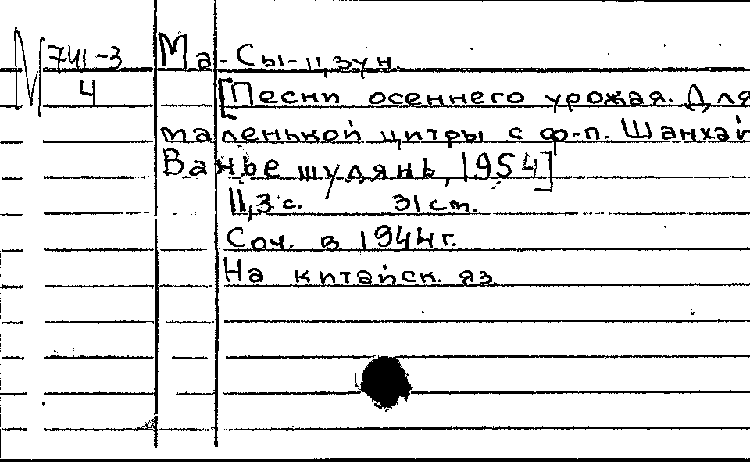 N 741-3 Ма-Сы-цзун.
4 [Песни осеннего урожая. Для
маленькой цитры с ф-п. Шанхай
Ванье шудянь, 1954]
11,3 с. 31 см.
Соч. в 1944 г.
На китайск. яз